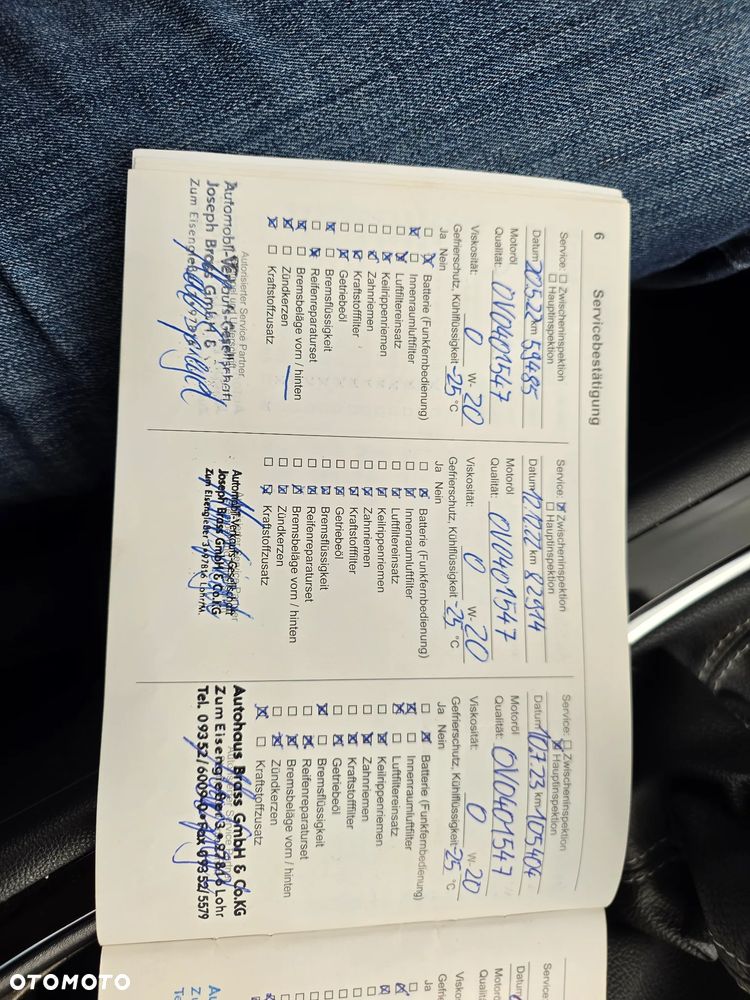 6
Servicebestätigung
Service: ☐ Zwischeninspektion
☐ Hauptinspektion
Datum 20.5.22 km 59485
Motoröl
Qualität: OV0401547
Viskosität: 0 W- 20
Gefrierschutz, Kühlflüssigkeit -25 °C
Ja Nein
Batterie (Funkfernbedienung)
Innenraumluftfilter
Luftfiltereinsatz
Keilrippenriemen
Zahnriemen
Kraftstofffilter
Getriebeöl
Bremsflüssigkeit
Reifenreparaturset
Bremsbeläge vorn / hinten
Zündkerzen
Kraftstoffzusatz
Autorisierter Service Partner
Automobil-Verkaufs-Gesellschaft
Joseph Brass GmbH &
Zum Eisengießer
Service: ☒ Zwischeninspektion
☐ Hauptinspektion
Datum 12.12.22 km 82914
Motoröl
Qualität: OV0401547
Viskosität: 0 W- 20
Gefrierschutz, Kühlflüssigkeit -25 °C
Ja Nein
Batterie (Funkfernbedienung)
Innenraumluftfilter
Luftfiltereinsatz
Keilrippenriemen
Zahnriemen
Kraftstofffilter
Getriebeöl
Bremsflüssigkeit
Reifenreparaturset
Bremsbeläge vorn / hinten
Zündkerzen
Kraftstoffzusatz
Automobil-Verkaufs-Gesellschaft
Joseph Brass GmbH & Co.KG
Zum Eisengießer 3 • 97816 Lohr/M.
Service: ☐ Zwischeninspektion
☒ Hauptinspektion
Datum 10.7.23 km 105404
Motoröl
Qualität: OV0401547
Viskosität: 0 W- 20
Gefrierschutz, Kühlflüssigkeit -25 °C
Ja Nein
Batterie (Funkfernbedienung)
Innenraumluftfilter
Luftfiltereinsatz
Keilrippenriemen
Zahnriemen
Kraftstofffilter
Getriebeöl
Bremsflüssigkeit
Reifenreparaturset
Bremsbeläge vorn / hinten
Zündkerzen
Kraftstoffzusatz
Autohaus Brass GmbH & Co.KG
Zum Eisengießer 3 • 97816 Lohr
Tel. 09352/6005-0 • Fax 09352/5579
Service:
Motoröl
Ja
OTOMOTO